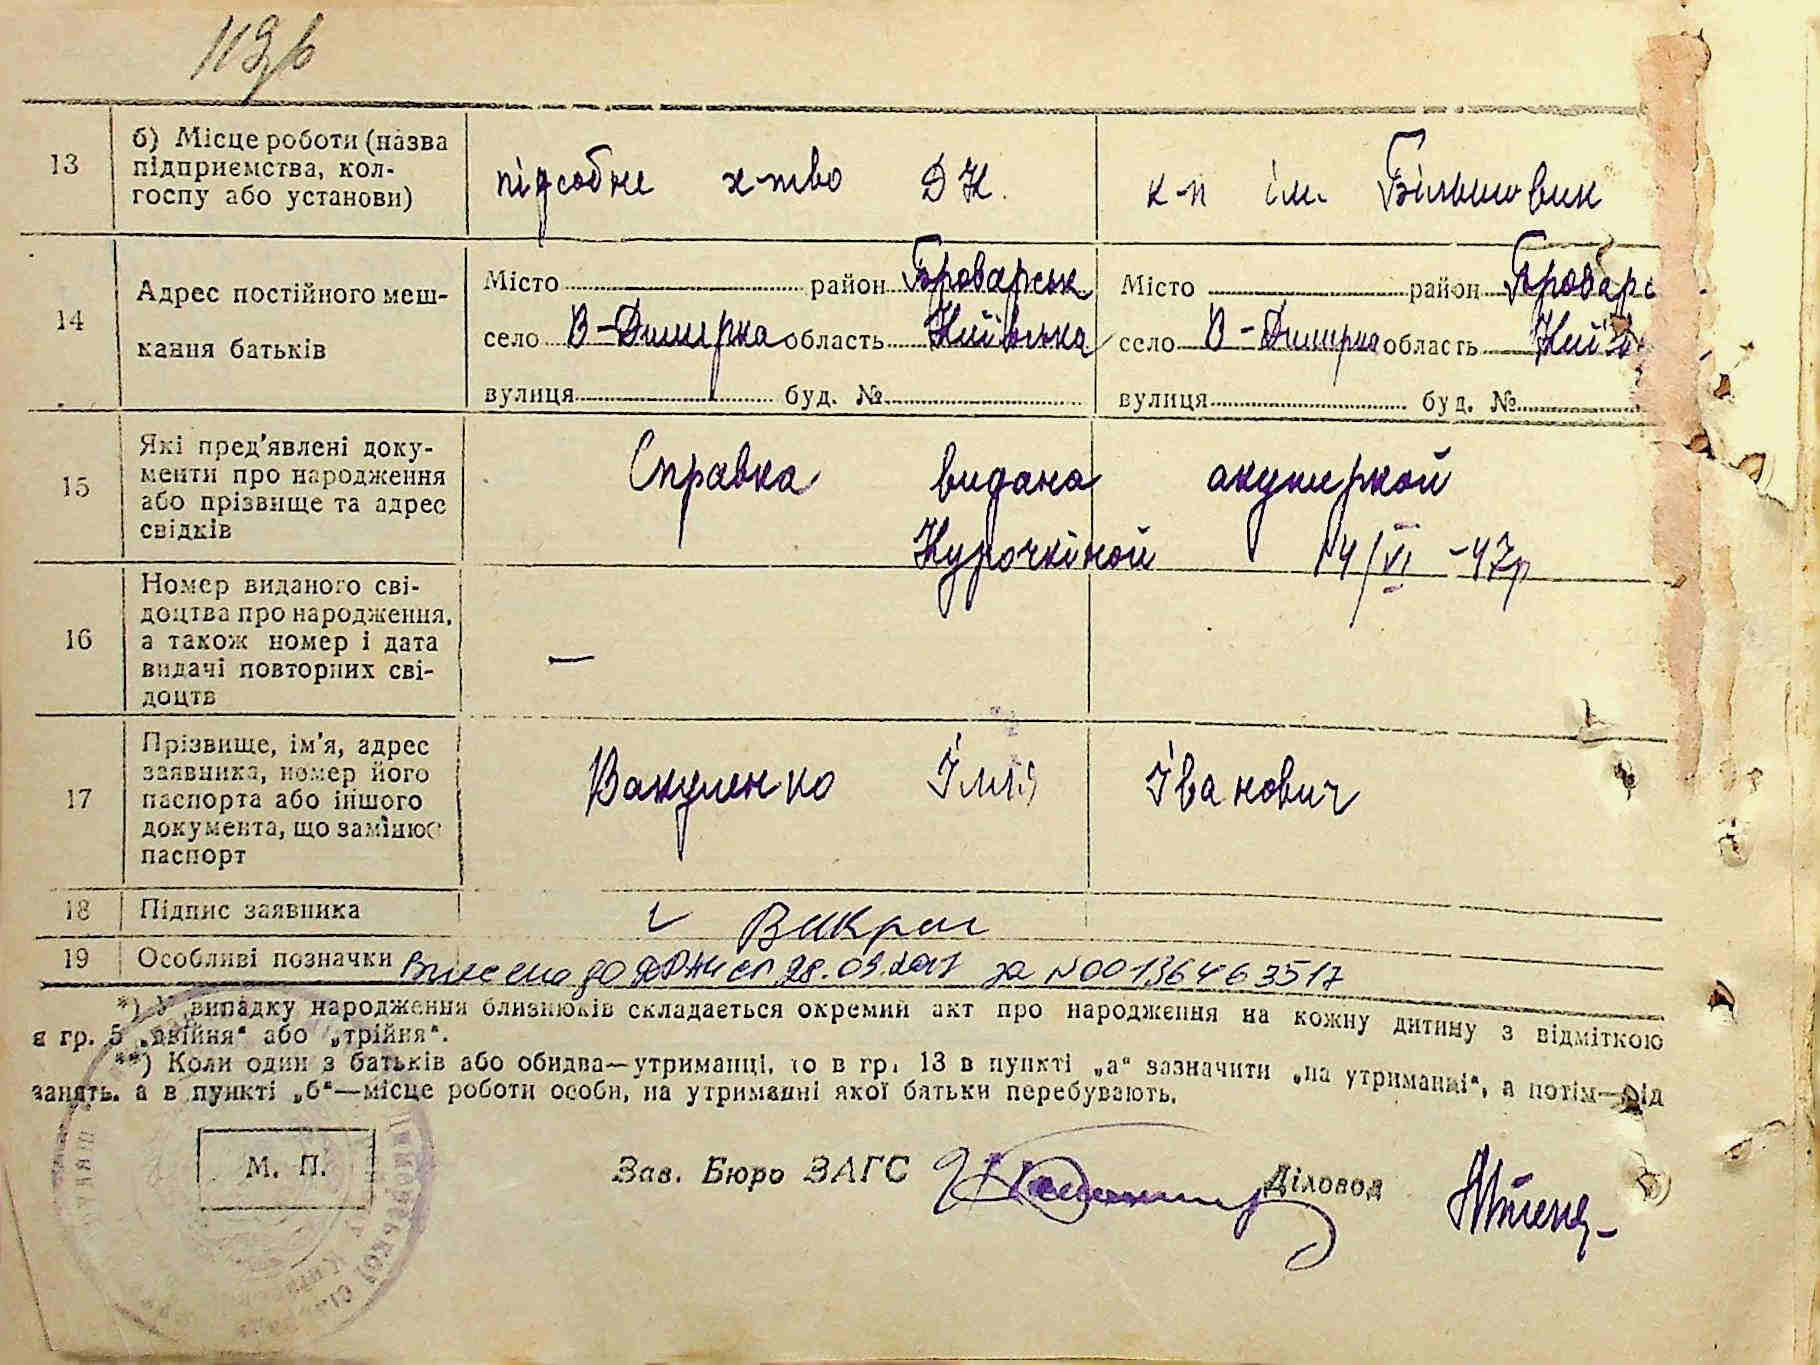 113 в
13
б) Місце роботи (назва
підприємства, кол-
госпу або установи)
підсобне х-тво ДК.
к-п ім. Більшовик
14
Адрес постійного меш-
кання батьків
Місто район Броварськ
село В-Димирка область Київська
вулиця буд. №
Місто район Броварс
село В-Димирка область Київ
вулиця буд. №
15
Які пред'явлені доку-
менти про народження
або прізвище та адрес
свідків
Справка видана акушеркой
Курочкіной 14/VI -47р
16
Номер виданого сві-
доцтва про народження,
а також номер і дата
видачі повторних сві-
доцтв
—
17
Прізвище, ім'я, адрес
заявника, номер його
паспорта або іншого
документа, що замінює
паспорт
Вакуленко Ілля Іванович
18
Підпис заявника
19
Особливі позначки
Внесено до 28.09.2017 за №00136463517
*) У випадку народження близнюків складається окремий акт про народження на кожну дитину з відміткою
в гр. 5 „двійня“ або „трійня“.
**) Коли один з батьків або обидва—утриманці, то в гр. 13 в пункті „а“ зазначити „на утриманні“, а потім—рід
занять, а в пункті „б“—місце роботи особи, на утриманні якої батьки перебувають.
М. П.
Зав. Бюро ЗАГС
Діловод